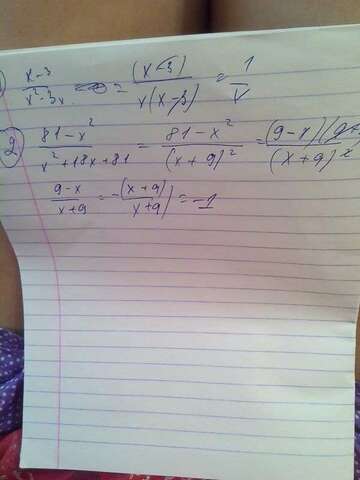 x-3 / x²-3x = (x-3) / x(x-3) = 1 / x
2) 81-x² / x²+18x+81 = 81-x² / (x+9)² = (9-x)(9+ / (x+9)²
9-x / x+9 = -(x+9) / x+9) = -1